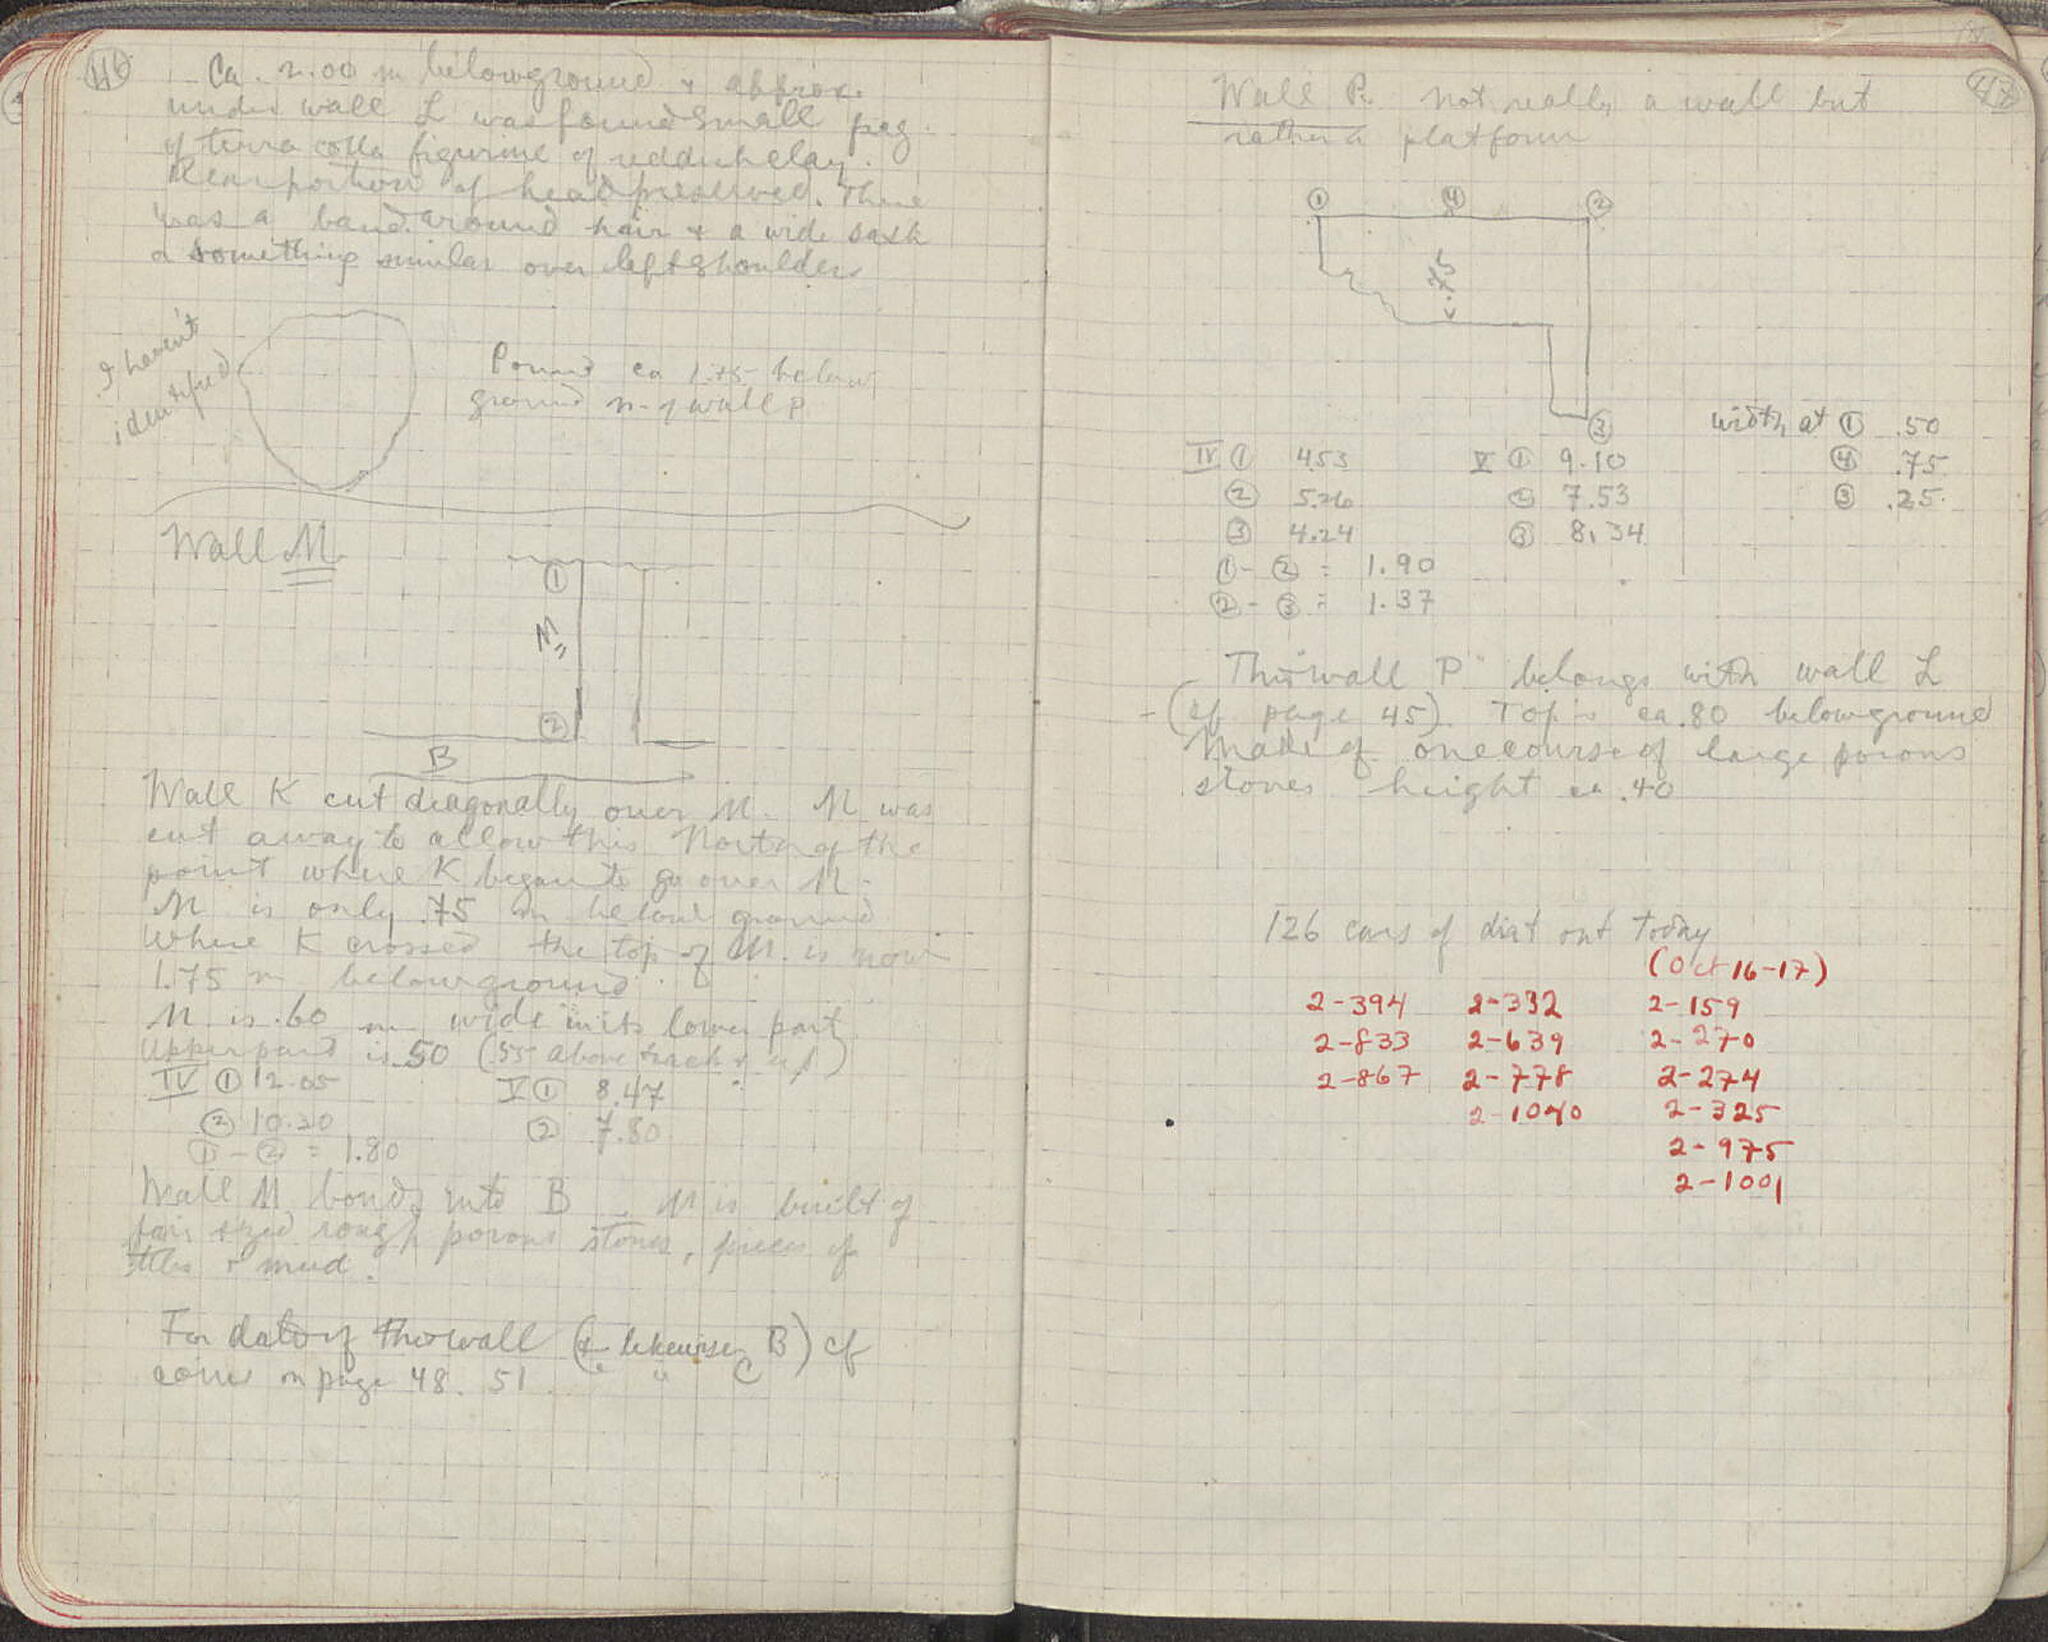 46
Ca. 2.00 m below ground & approx.
under wall L was found small frag.
of terra cotta figurine of reddish clay.
Rear portion of head preserved. There
was a band around hair & a wide sash
or something similar over left shoulder
I haven't
identified
Found ca 1.75 below
ground n. of wall P
Wall M
①
M
②
B
Wall K cut diagonally over M. M was
cut away to allow this North of the
point where K began to go over M.
M is only .75 m below ground
Where K crossed the top of M. is now
1.75 m below ground.
M is .60 m wide in its lower part
Upper part is .50 (.55 above track & up)
IV ① 12.05 V ① 8.47
② 10.20 ② 7.80
① - ② = 1.80
Wall M bonds into B. M is built of
fair sized rough poros stones, pieces of
tiles & mud.
For date of this wall (& likewise B) cf
" " C
coins on page 48. 51
47
Wall P. not really a wall but
rather a platform
① ④ ②
.75
③
width at ① .50
IV ① 4.53 V ① 9.10 ④ .75
② 5.26 ② 7.53 ③ .25
③ 4.24 ③ 8.34
① - ② = 1.90
② - ③ = 1.37
This "wall P" belongs with wall L
(cf page 45). Top is ca .80 below ground
Made of one course of large poros
stones height ca .40
126 cars of dirt out today
(Oct 16-17)
2-394 2-332 2-159
2-833 2-639 2-270
2-867 2-778 2-274
2-1040 2-325
2-975
2-1001